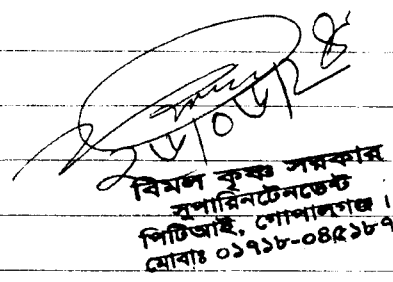 বিমল কৃষ্ণ সরকার
সুপারিনটেনডেন্ট
পিটিআই, গোপালগঞ্জ ।
মোবাঃ ০১৯১৮-০৪৫১৮৭